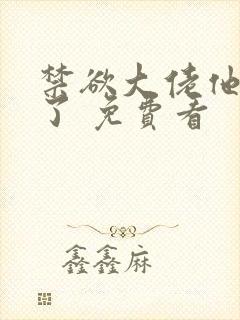 禁欲大佬他
了 免費看
鑫鑫麻